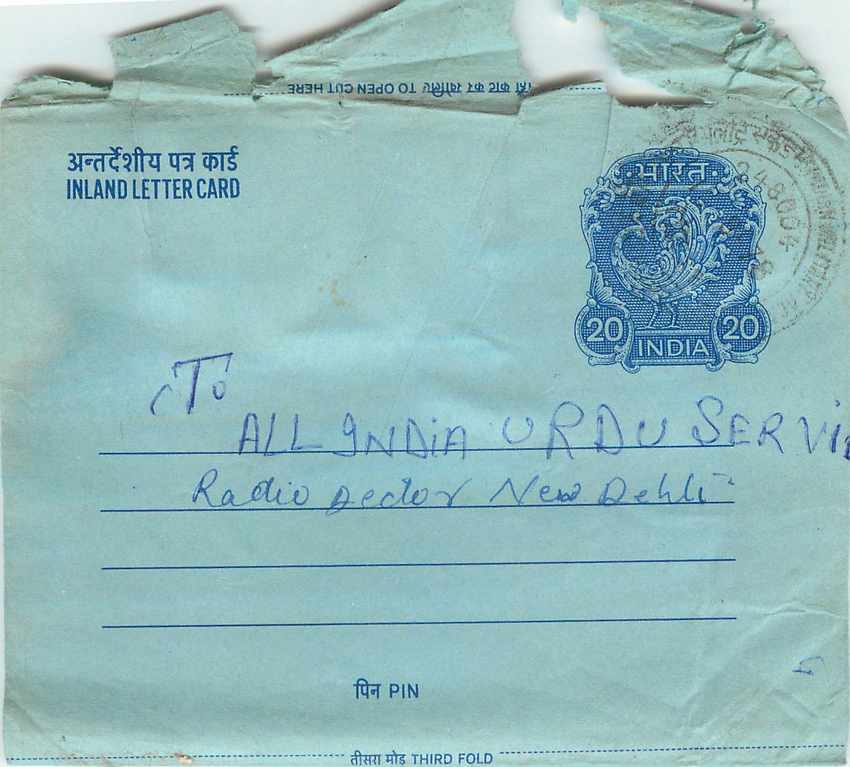 काट कर खोलिए TO OPEN CUT HERE
अन्तर्देशीय पत्र कार्ड
INLAND LETTER CARD
भारत
248004
20 20
INDIA
To
ALL INDIA URDU SERVI
Radio New Dehli
पिन PIN
तीसरा मोड़ THIRD FOLD